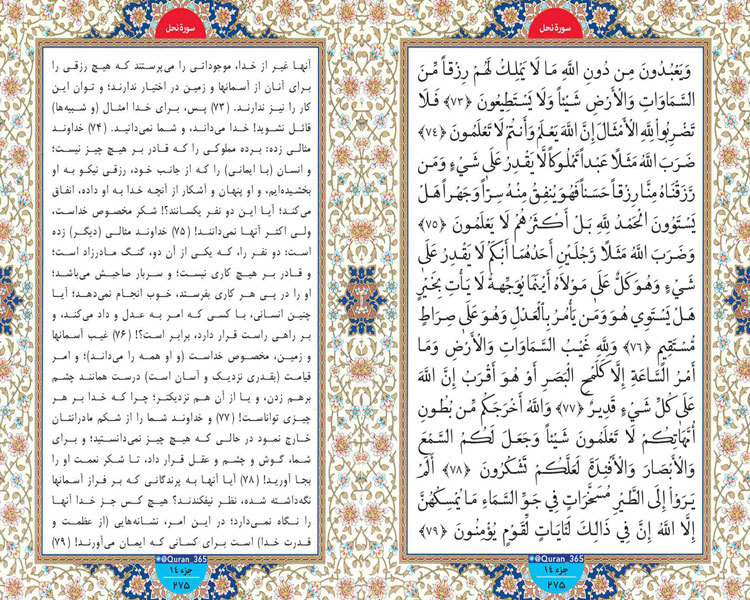 سورة نحل
وَيَعْبُدُونَ مِن دُونِ اللَّهِ مَا لَا يَمْلِكُ لَهُمْ رِزْقاً مِّنَ
السَّمَاوَاتِ وَالْأَرْضِ شَيْئاً وَلَا يَسْتَطِيعُونَ ﴿۷۳﴾ فَلَا
تَضْرِبُوا لِلَّهِ الْأَمْثَالَ إِنَّ اللَّهَ يَعْلَمُ وَأَنتُمْ لَا تَعْلَمُونَ ﴿۷۴﴾
ضَرَبَ اللَّهُ مَثَلًا عَبْداً مَّمْلُوكاً لَّا يَقْدِرُ عَلَى شَيْءٍ وَمَن
رَّزَقْنَاهُ مِنَّا رِزْقاً حَسَناً فَهُوَ يُنفِقُ مِنْهُ سِرّاً وَجَهْراً هَلْ
يَسْتَوُونَ الْحَمْدُ لِلَّهِ بَلْ أَكْثَرُهُمْ لَا يَعْلَمُونَ ﴿۷۵﴾
وَضَرَبَ اللَّهُ مَثَلًا رَّجُلَيْنِ أَحَدُهُمَا أَبْكَمُ لَا يَقْدِرُ عَلَى
شَيْءٍ وَهُوَ كَلٌّ عَلَى مَوْلَاهُ أَيْنَمَا يُوَجِّههُّ لَا يَأْتِ بِخَيْرٍ
هَلْ يَسْتَوِي هُوَ وَمَن يَأْمُرُ بِالْعَدْلِ وَهُوَ عَلَى صِرَاطٍ
مُّسْتَقِيمٍ ﴿۷۶﴾ وَلِلَّهِ غَيْبُ السَّمَاوَاتِ وَالْأَرْضِ وَمَا
أَمْرُ السَّاعَةِ إِلَّا كَلَمْحِ الْبَصَرِ أَوْ هُوَ أَقْرَبُ إِنَّ اللَّهَ
عَلَى كُلِّ شَيْءٍ قَدِيرٌ ﴿۷۷﴾ وَاللَّهُ أَخْرَجَكُم مِّن بُطُونِ
أُمَّهَاتِكُمْ لَا تَعْلَمُونَ شَيْئاً وَجَعَلَ لَكُمُ السَّمْعَ
وَالْأَبْصَارَ وَالْأَفْئِدَةَ لَعَلَّكُمْ تَشْكُرُونَ ﴿۷۸﴾ أَلَمْ
يَرَوْا إِلَى الطَّيْرِ مُسَخَّرَاتٍ فِي جَوِّ السَّمَاءِ مَا يُمْسِكُهُنَّ
إِلَّا اللَّهُ إِنَّ فِي ذَلِكَ لَآيَاتٍ لِّقَوْمٍ يُؤْمِنُونَ ﴿۷۹﴾
@Quran_365
جزء ۱۴
۲۷۵
سورة نحل
آنها غیر از خدا، موجوداتی را می‌پرستند که هیچ رزقی را
برای آنان از آسمانها و زمین در اختیار ندارند؛ و توان این
کار را نیز ندارند. (۷۳) پس، برای خدا امثال (و شبیه‌ها)
قائل نشوید! خدا می‌داند، و شما نمی‌دانید. (۷۴) خداوند
مثالی زده: برده مملوکی را که قادر بر هیچ چیز نیست؛
و انسان (با ایمانی) را که از جانب خود، رزقی نیکو به او
بخشیده‌ایم، و او پنهان و آشکار از آنچه خدا به او داده، انفاق
می‌کند؛ آیا این دو نفر یکسانند؟! شکر مخصوص خداست،
ولی اکثر آنها نمی‌دانند! (۷۵) خداوند مثالی (دیگر) زده
است: دو نفر را، که یکی از آن دو، گنگ مادرزاد است؛
و قادر بر هیچ کاری نیست؛ و سربار صاحبش می‌باشد؛
او را در پی هر کاری بفرستد، خوب انجام نمی‌دهد؛ آیا
چنین انسانی، با کسی که امر به عدل و داد می‌کند، و
بر راهی راست قرار دارد، برابر است؟! (۷۶) غیب آسمانها
و زمین، مخصوص خداست (و او همه را می‌داند)؛ و امر
قیامت (بقدری نزدیک و آسان است) درست همانند چشم
برهم زدن، و یا از آن هم نزدیکتر؛ چرا که خدا بر هر
چیزی تواناست! (۷۷) و خداوند شما را از شکم مادرانتان
خارج نمود در حالی که هیچ چیز نمی‌دانستید؛ و برای
شما، گوش و چشم و عقل قرار داد، تا شکر نعمت او را
بجا آورید! (۷۸) آیا آنها به پرندگانی که بر فراز آسمانها
نگه‌داشته شده، نظر نیفکندند؟ هیچ کس جز خدا آنها
را نگاه نمی‌دارد؛ در این امر، نشانه‌هایی (از عظمت و
قدرت خدا) است برای کسانی که ایمان می‌آورند! (۷۹)
@Quran_365
جزء ۱۴
۲۷۵